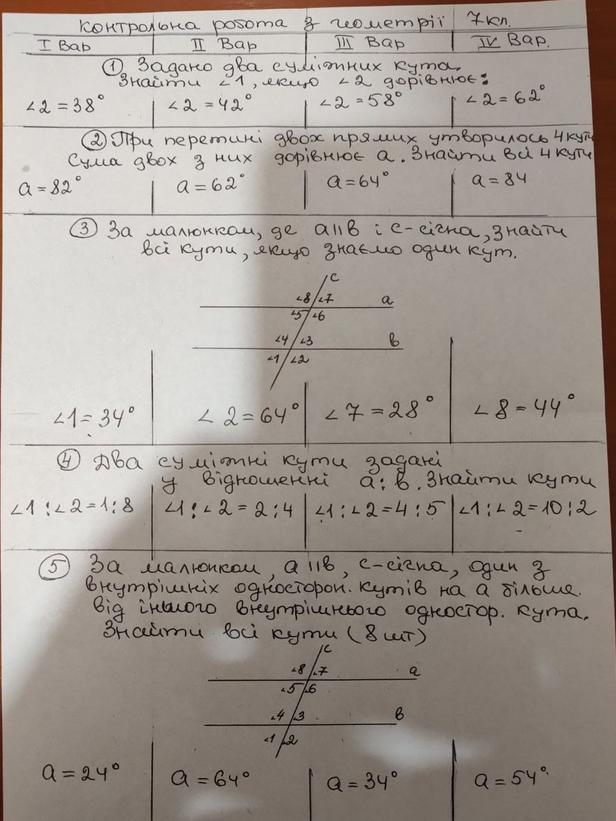 Контрольна робота з геометрії 7кл.
I Вар II Вар III Вар IV Вар.
① Задано два суміжних кута.
Знайти ∠1, якщо ∠2 дорівнює:
∠2=38° ∠2=42° ∠2=58° ∠2=62°
② При перетині двох прямих утворилось 4 кути
Сума двох з них дорівнює a. Знайти всі 4 кути
a=82° a=62° a=64° a=84
③ За малюнком, де a||b і c-січна, знайти
всі кути, якщо знаємо один кут.
c
∠8 ∠7 a
∠5 ∠6
∠4 ∠3 b
∠1 ∠2
∠1=34° ∠2=64° ∠7=28° ∠8=44°
④ Два суміжні кути задані
у відношенні a:b. Знайти кути
∠1:∠2=1:8 ∠1:∠2=2:4 ∠1:∠2=4:5 ∠1:∠2=10:2
⑤ За малюнком, a||b, c-січна, один з
внутрішніх односторон. кутів на a більше
від іншого внутрішнього одностор. кута.
Знайти всі кути (8 шт)
c
∠8 ∠7 a
∠5 ∠6
∠4 ∠3 b
∠1 ∠2
a=24° a=64° a=34° a=54°